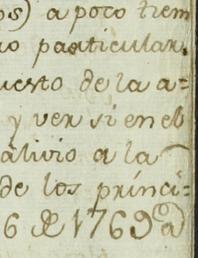 os) a poco tiem
no particular.
uesto de la a=
y ver si en el
alivio a la
de los princi-
6 de 1769 a)